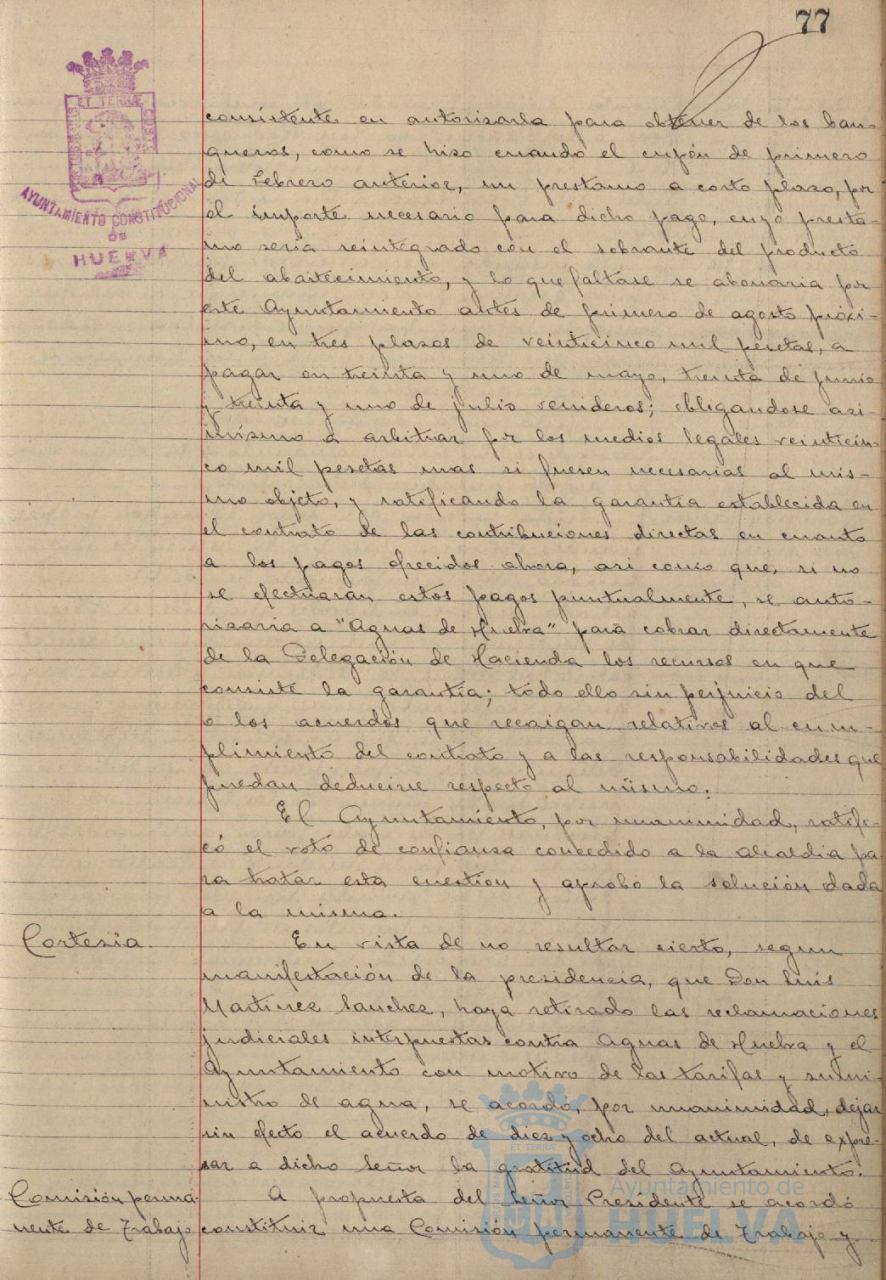 77
ET TERRE
AYUNTAMIENTO CONSTITUCIONAL
DE
HUELVA
consistente en autorizarla para obtener de los ban-
queros, como se hizo cuando el cupón de primero
de Febrero anterior, un prestamo a corto plazo, por
el importe necesario para dicho pago, cuyo presta-
mo seria reintegrado con el sobrante del producto
del abastecimiento, y lo que faltase se abonaria por
este Ayuntamiento antes de primero de agosto próxi-
mo, en tres plazos de veinticinco mil pesetas, a
pagar en treinta y uno de mayo, treinta de junio
y treinta y uno de julio venideros; obligandose asi-
mismo a arbitrar por los medios legales veinticin-
co mil pesetas mas si fuesen necesarias al mis-
mo objeto, y ratificando la garantia establecida en
el contrato de las contribuciones directas en cuanto
a los pagos ofrecidos ahora, asi como que, si no
se efectuaran estos pagos puntualmente, se auto-
rizaria a "Aguas de Huelva" para cobrar directamente
de la Delegación de Hacienda los recursos en que
consiste la garantia; todo ello sin perjuicio del
o los acuerdos que recaigan relativos al cum-
plimiento del contrato y a las responsabilidades que
puedan deducirse respecto al mismo.
El Ayuntamiento, por unanimidad, ratifi-
có el voto de confianza concedido a la alcaldia pa-
ra tratar esta cuestion y aprobó la solución dada
a la misma.
Cortesia. En vista de no resultar cierto, segun
manifestación de la presidencia, que Don Luis
Martinez Sanchez, haya retirado las reclamaciones
judiciales interpuestas contra Aguas de Huelva y el
Ayuntamiento con motivo de las tarifas y sumi-
nistro de agua, se acordó, por unanimidad, dejar
sin efecto el acuerdo de diez y ocho del actual, de expre-
sar a dicho Señor la gratitud del Ayuntamiento.
Comisión perma- A propuesta del Señor Presidente se acordó
nente de Trabajo constituir una Comisión permanente de Trabajo y
Ayuntamiento de
HUELVA